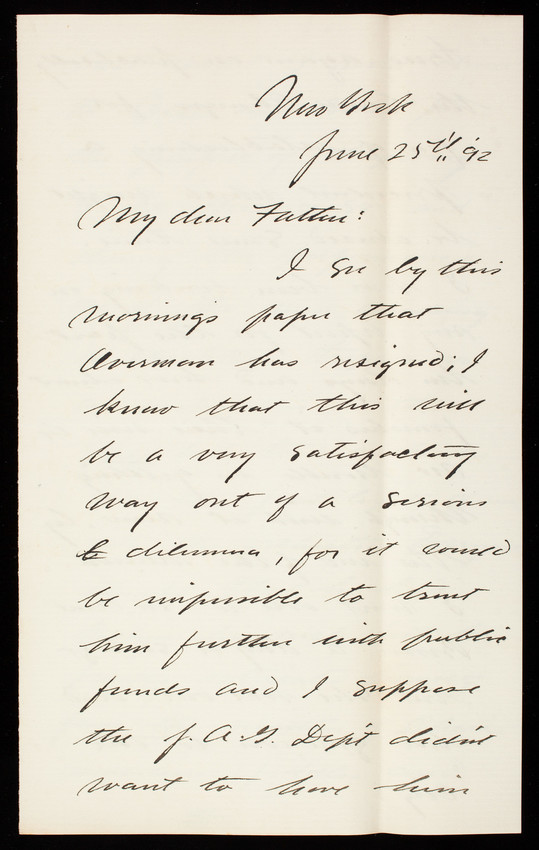 New York
June 25th '92
My dear Father:
I see by this
morning's paper that
Overman has resigned; I
know that this will
be a very satisfactory
way out of a serious
dilemma, for it would
be impossible to trust
him further with public
funds and I suppose
the J.A.G. Dep't didn't
want to have him